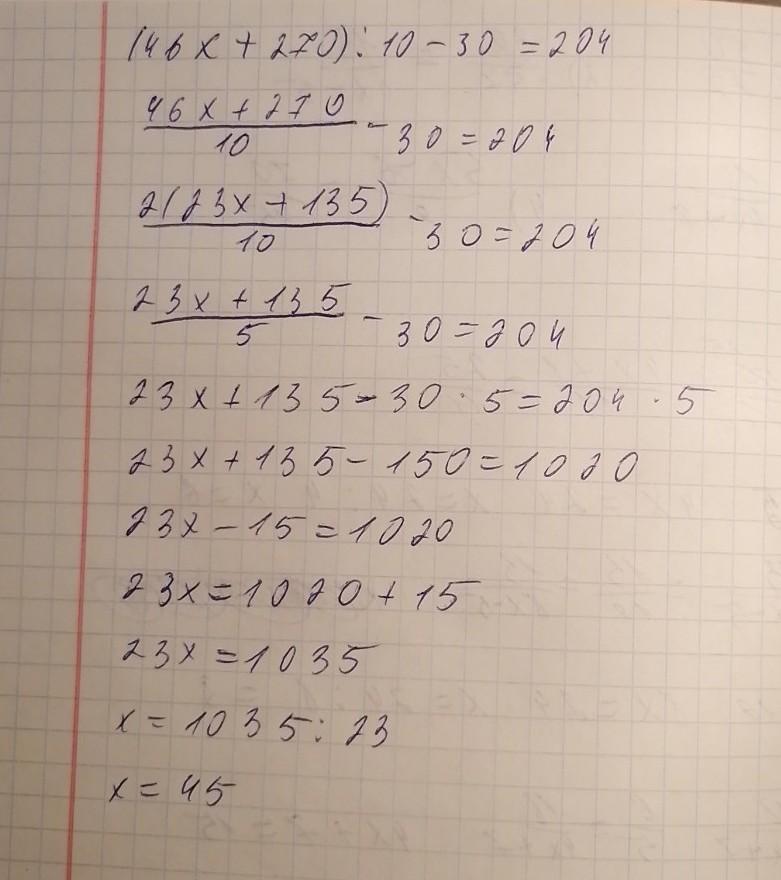 (46x + 270) : 10 - 30 = 204
46x + 270
10
- 30 = 204
2(23x + 135)
10
- 30 = 204
23x + 135
5
- 30 = 204
23x + 135 - 30 · 5 = 204 · 5
23x + 135 - 150 = 1020
23x - 15 = 1020
23x = 1020 + 15
23x = 1035
x = 1035 : 23
x = 45